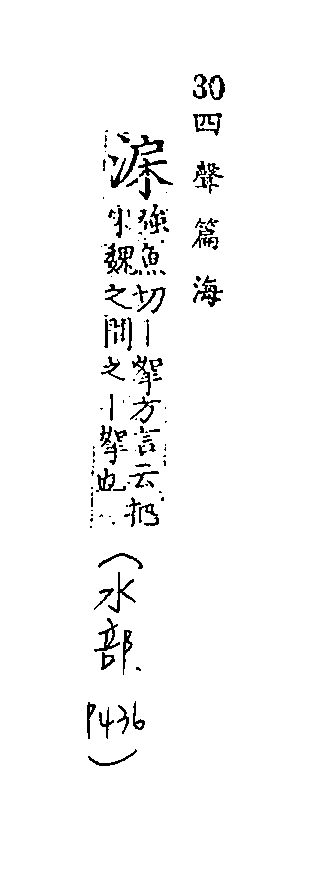 30四聲篇海
強魚切丨挐方言云杷
宋魏之間之丨挐也
(水部、
P436)